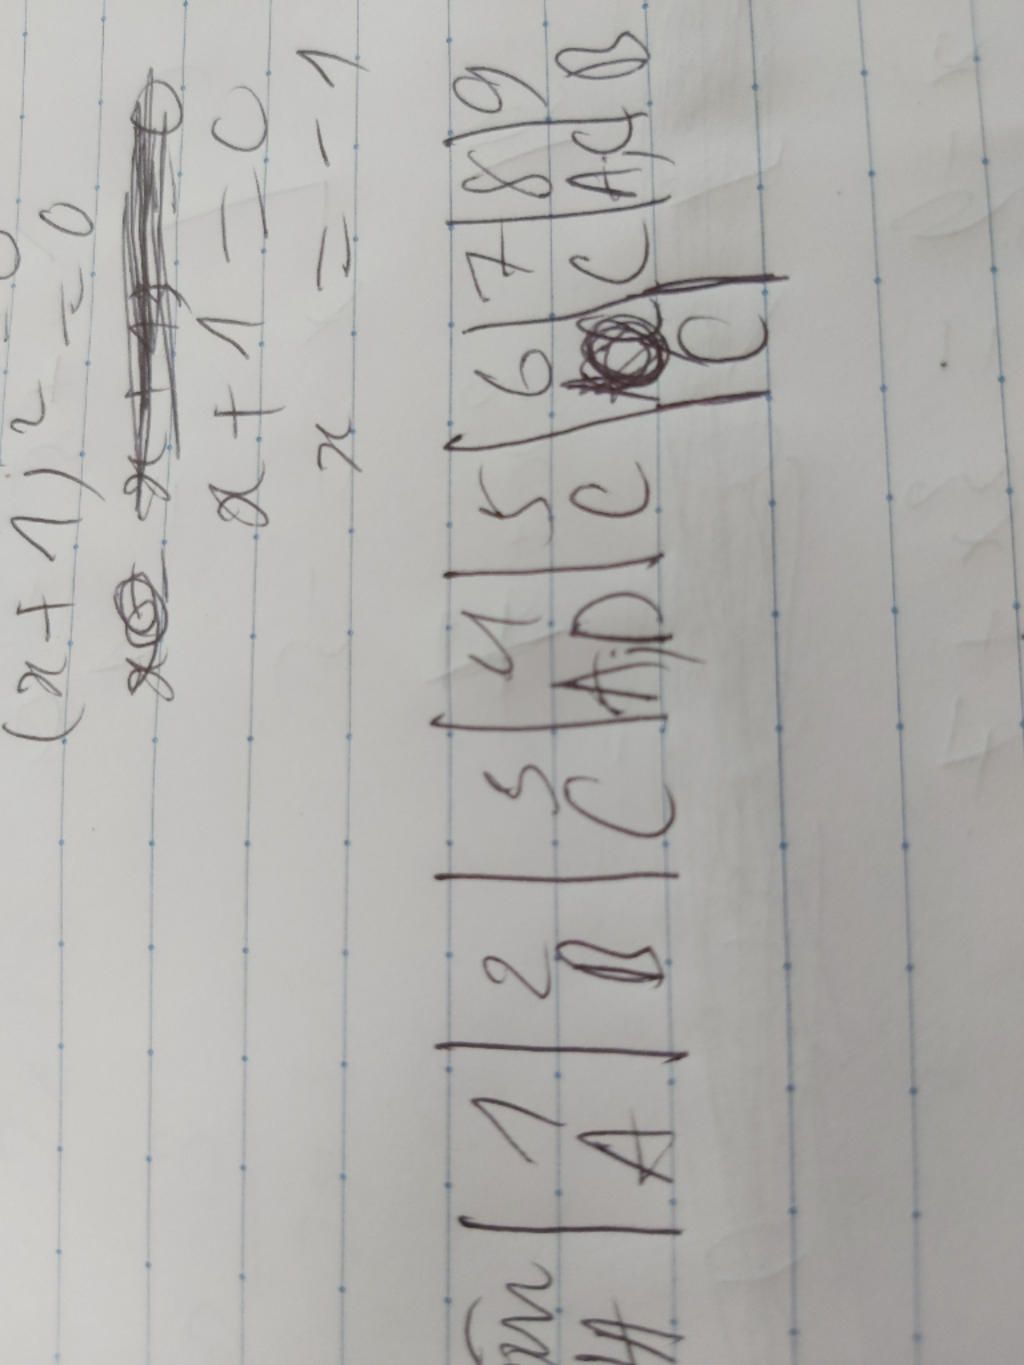 (x+1)² = 0
x+1=0
x = -1
1 | 2 | 3 | 4 | 5 | 6 | 7 | 8 | 9
A | B | C | A;D | C | C | C | A;C | B